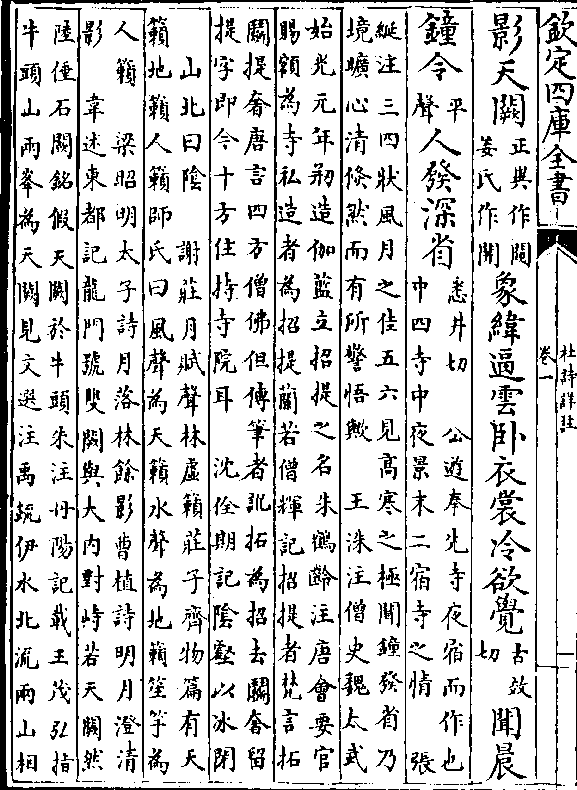 欽定四庫全書
杜詩詳註
卷一
影天闕正異作闚姜氏作開象緯逼雲臥衣裳冷欲覺古效切聞晨
鐘令平聲人發深省悉井切 公遊奉先寺夜宿而作也
中四寺中夜景末二宿寺之情 張
綖注三四狀風月之佳五六見高寒之極聞鐘發省乃
境曠心清倏然而有所警悟歟 王洙注僧史魏太武
始光元年剏造伽藍立招提之名朱鶴齡注唐會要官
賜額為寺私造者為招提蘭若僧輝記招提者梵言拓
鬬提奢唐言四方僧佛但傳筆者訛拓為招去鬬奢留
提字即今十方住持寺院耳 沈佺期記陰壑以冰閉
山北曰陰 謝莊月賦聲林虛籟莊子齊物篇有天
籟地籟人籟師氏曰風聲為天籟水聲為地籟笙竽為
人籟 梁昭明太子詩月落林餘影曹植詩明月澄清
影 韋述東都記龍門號雙闕與大內對峙若天闕然
陸倕石闕銘假天闕於牛頭朱注丹陽記載王茂弘指
牛頭山兩峯為天闕見文選注禹疏伊水北流兩山相